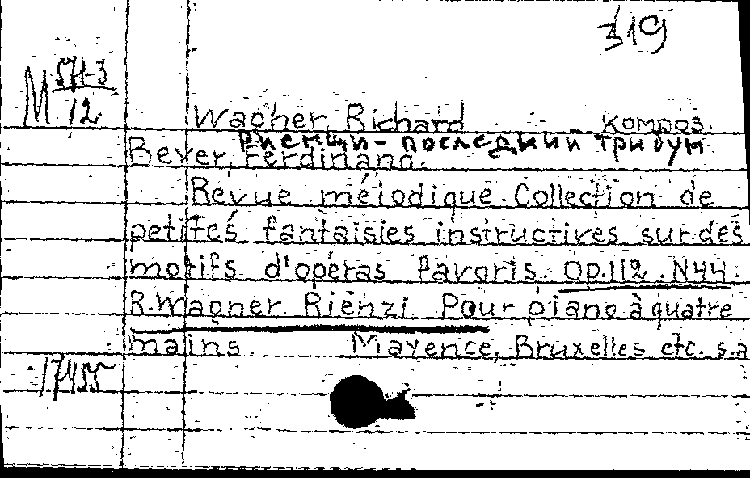 319
M 571-3/12
Wagner, Richard Kompos.
Риенци - последний трибун
Beyer, Ferdinand.
Revue mélodique. Collection de
petites fantaisies instructives sur des
motifs d'opéras favoris. Op.112. N44.
R. Wagner Rienzi. Pour piano à quatre
mains. Mayence, Bruxelles etc. s.a
17455